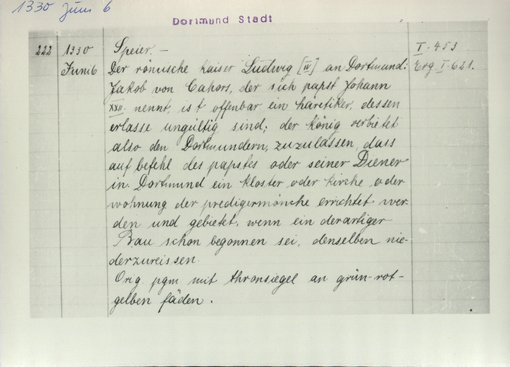 1330 Juni 6
Dortmund Stadt
222 1330 Speier. – I. 453
Juni 6 Der römische kaiser Ludwig [IV] an Dortmund: Erg I. 621.
Jakob von Cahors, der sich papst Johann
XXII. nennt, ist offenbar ein haretiker, dessen
erlasse ungültig sind; der könig verbietet
also den Dortmundern, zuzulassen, dass
auf befehl des papstes oder seiner Diener
in Dortmund ein kloster oder kirche oder
wohnung der predigermönche errichtet wer-
den und gebietet, wenn ein derartiger
Bau schon begonnen sei, denselben nie-
derzureissen.
Org pgm mit thronsiegel an grün-rot-
gelben fäden.